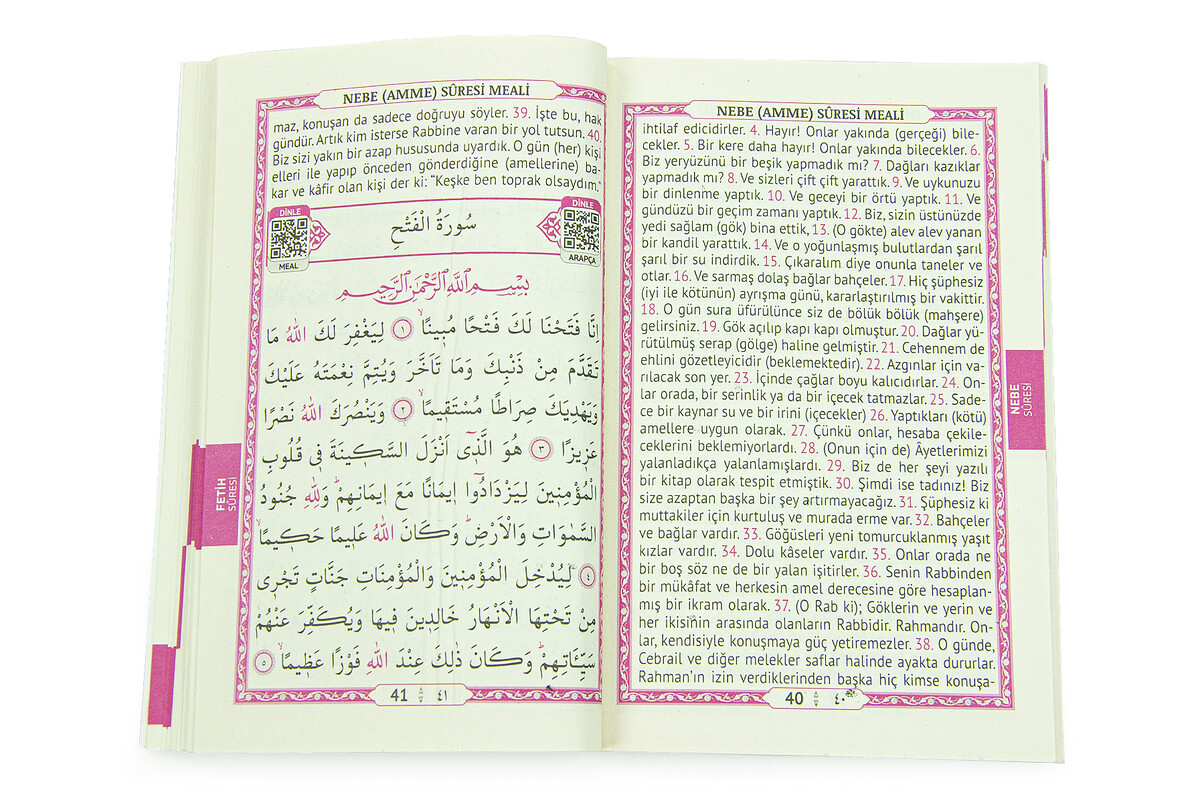 NEBE (AMME) SÛRESİ MEALİ
ihtilaf edicidirler. 4. Hayır! Onlar yakında (gerçeği) bile-
cekler. 5. Bir kere daha hayır! Onlar yakında bilecekler. 6.
Biz yeryüzünü bir beşik yapmadık mı? 7. Dağları kazıklar
yapmadık mı? 8. Ve sizleri çift çift yarattık. 9. Ve uykunuzu
bir dinlenme yaptık. 10. Ve geceyi bir örtü yaptık. 11. Ve
gündüzü bir geçim zamanı yaptık. 12. Biz, sizin üstünüzde
yedi sağlam (gök) bina ettik, 13. (O gökte) alev alev yanan
bir kandil yarattık. 14. Ve o yoğunlaşmış bulutlardan şarıl
şarıl bir su indirdik. 15. Çıkaralım diye onunla taneler ve
otlar. 16. Ve sarmaş dolaş bağlar bahçeler. 17. Hiç şüphesiz
(iyi ile kötünün) ayrışma günü, kararlaştırılmış bir vakittir.
18. O gün sura üfürülünce siz de bölük bölük (mahşere)
gelirsiniz. 19. Gök açılıp kapı kapı olmuştur. 20. Dağlar yü-
rütülmüş serap (gölge) haline gelmiştir. 21. Cehennem de
ehlini gözetleyicidir (beklemektedir). 22. Azgınlar için va-
rılacak son yer. 23. İçinde çağlar boyu kalıcıdırlar. 24. On-
lar orada, bir serinlik ya da bir içecek tatmazlar. 25. Sade-
ce bir kaynar su ve bir irini (içecekler) 26. Yaptıkları (kötü)
amellere uygun olarak. 27. Çünkü onlar, hesaba çekile-
ceklerini beklemiyorlardı. 28. (Onun için de) Âyetlerimizi
yalanladıkça yalanlamışlardı. 29. Biz de her şeyi yazılı
bir kitap olarak tespit etmiştik. 30. Şimdi ise tadınız! Biz
size azaptan başka bir şey artırmayacağız. 31. Şüphesiz ki
muttakiler için kurtuluş ve murada erme var. 32. Bahçeler
ve bağlar vardır. 33. Göğüsleri yeni tomurcuklanmış yaşıt
kızlar vardır. 34. Dolu kâseler vardır. 35. Onlar orada ne
bir boş söz ne de bir yalan işitirler. 36. Senin Rabbinden
bir mükâfat ve herkesin amel derecesine göre hesaplan-
mış bir ikram olarak. 37. (O Rab ki); Göklerin ve yerin ve
her ikisinin arasında olanların Rabbidir. Rahmandır. On-
lar, kendisiyle konuşmaya güç yetiremezler. 38. O günde,
Cebrail ve diğer melekler saflar halinde ayakta dururlar.
Rahman'ın izin verdiklerinden başka hiç kimse konuşa-
40 ٤٠
NEBE
SÛRESİ
NEBE (AMME) SÛRESİ MEALİ
maz, konuşan da sadece doğruyu söyler. 39. İşte bu, hak
gündür. Artık kim isterse Rabbine varan bir yol tutsun. 40.
Biz sizi yakın bir azap hususunda uyardık. O gün (her) kişi
elleri ile yapıp önceden gönderdiğine (amellerine) ba-
kar ve kâfir olan kişi der ki: "Keşke ben toprak olsaydım."
DİNLE
MEAL
سُورَةُ الْفَتْحِ
DİNLE
ARAPÇA
بِسْمِ اللّٰهِ الرَّحْمٰنِ الرَّحِيمِ
اِنَّا فَتَحْنَا لَكَ فَتْحًا مُبِينًاۙ ﴿١﴾ لِيَغْفِرَ لَكَ اللّٰهُ مَا
تَقَدَّمَ مِنْ ذَنْبِكَ وَمَا تَاَخَّرَ وَيُتِمَّ نِعْمَتَهُ عَلَيْكَ
وَيَهْدِيَكَ صِرَاطًا مُسْتَقِيمًاۙ ﴿٢﴾ وَيَنْصُرَكَ اللّٰهُ نَصْرًا
عَزِيزًا ﴿٣﴾ هُوَ الَّذ۪ٓى اَنْزَلَ السَّكِينَةَ فِى قُلُوبِ
الْمُؤْمِنِينَ لِيَزْدَادُٓوا اِيمَانًا مَعَ اِيمَانِهِمْۜ وَلِلّٰهِ جُنُودُ
السَّمٰوَاتِ وَالْاَرْضِۜ وَكَانَ اللّٰهُ عَلِيمًا حَكِيمًاۙ
﴿٤﴾ لِيُدْخِلَ الْمُؤْمِنِينَ وَالْمُؤْمِنَاتِ جَنَّاتٍ تَجْرِى
مِنْ تَحْتِهَا الْاَنْهَارُ خَالِدِينَ فِيهَا وَيُكَفِّرَ عَنْهُمْ
سَيِّـَٔاتِهِمْۜ وَكَانَ ذٰلِكَ عِنْدَ اللّٰهِ فَوْزًا عَظِيمًاۙ ﴿٥﴾
41 ٤١
FETİH
SÛRESİ